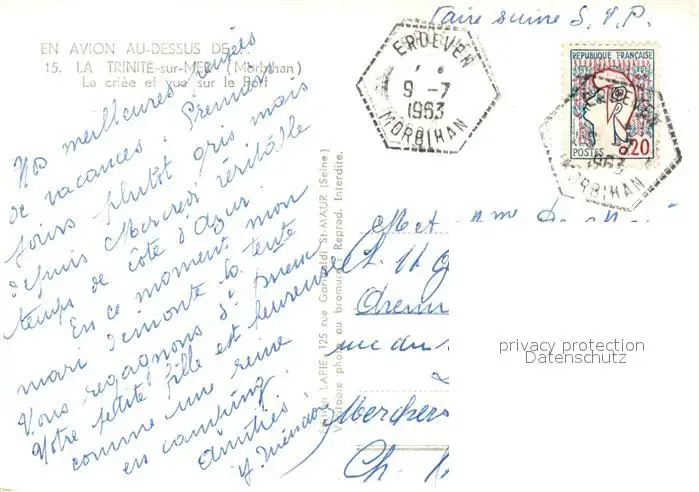 Faire suivre S.V.P.
EN AVION AU-DESSUS DE...
15. LA TRINITÉ-sur-MER (Morbihan)
La criée et vue sur le Port
ERDEVEN
9 -7
1963
MORBIHAN
REPUBLIQUE FRANÇAISE
POSTES 0,20
1963
MORBIHAN
Nos meilleures pensées
de vacances. Premiers
jours plutôt gris mais
depuis Mercredi véritable
temps de côte d'Azur.
En ce moment mon
mari démonte la tente
Vous regagnons St
Votre petite fille est heureuse
comme une reine
en camping.
Amitiés
Edition LAPIE, 125 rue Garibaldi St-MAUR (Seine)
Véritable photo au bromure - Reprod. Interdite.
M et Mme
rue du
Ch.
privacy protection
Datenschutz